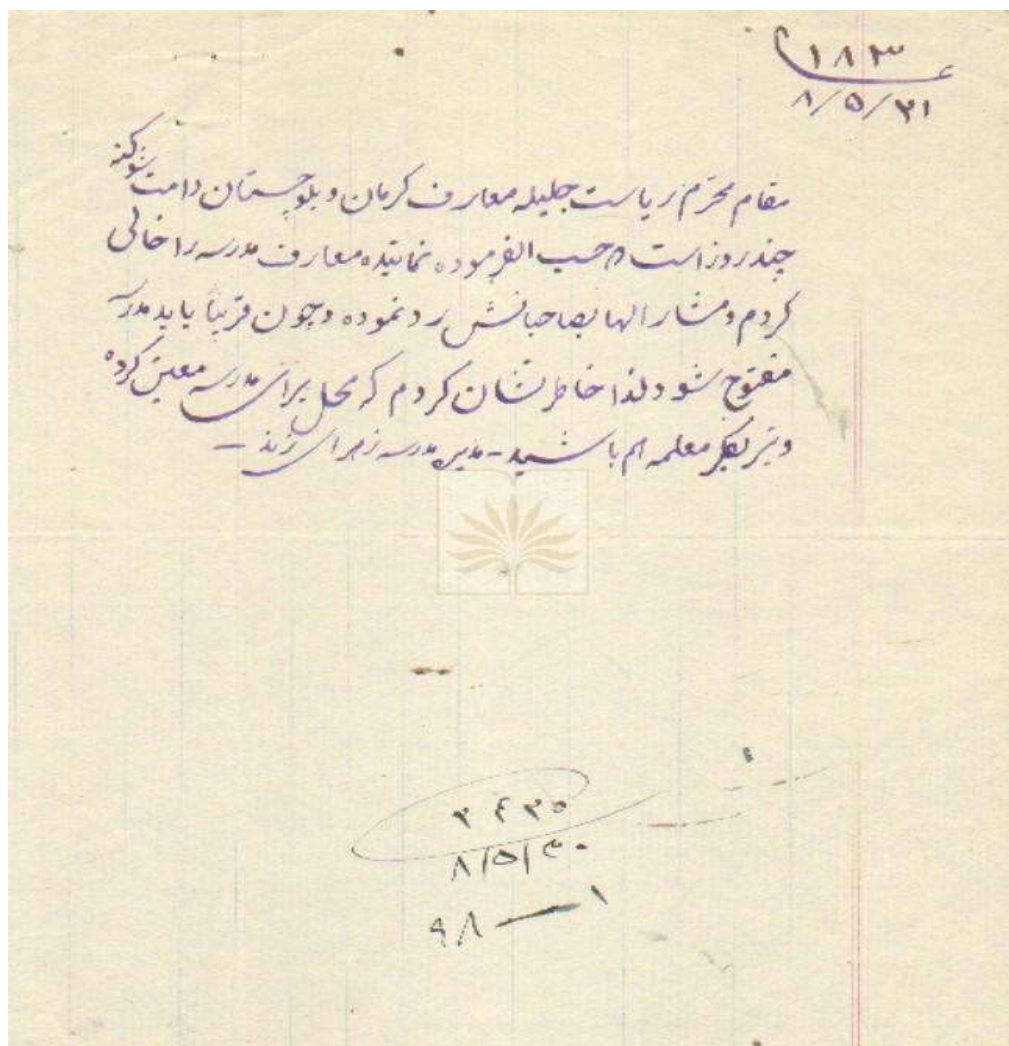 ۱۸۳
۸/۵/۳۱
مقام محترم ریاست جلیله معارف کرمان و بلوچستان دامت شوکته
چند روز است حسب الفرموده نماینده معارف مدرسه را خالی
کردم و مشار الها بصاحبانش رد نموده و چون قریبا باید مدرسه
مفتوح شود لذا خاطر نشان کردم که محل برای مدرسه معین کرده
و نیز بفکر معلمه هم باشید - مدیره مدرسه زهرای زند -
۲۴۳۵
۸/۵/۳۰
۱ — ۹۸